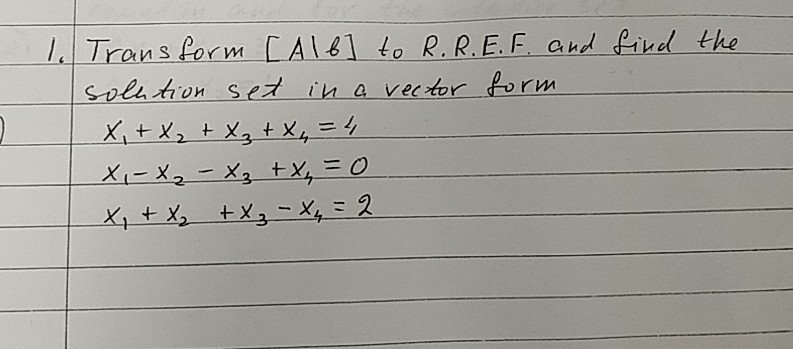 1. Transform [A|b] to R.R.E.F. and find the
solution set in a vector form
x₁ + x₂ + x₃ + x₄ = 4
x₁ - x₂ - x₃ + x₄ = 0
x₁ + x₂ + x₃ - x₄ = 2